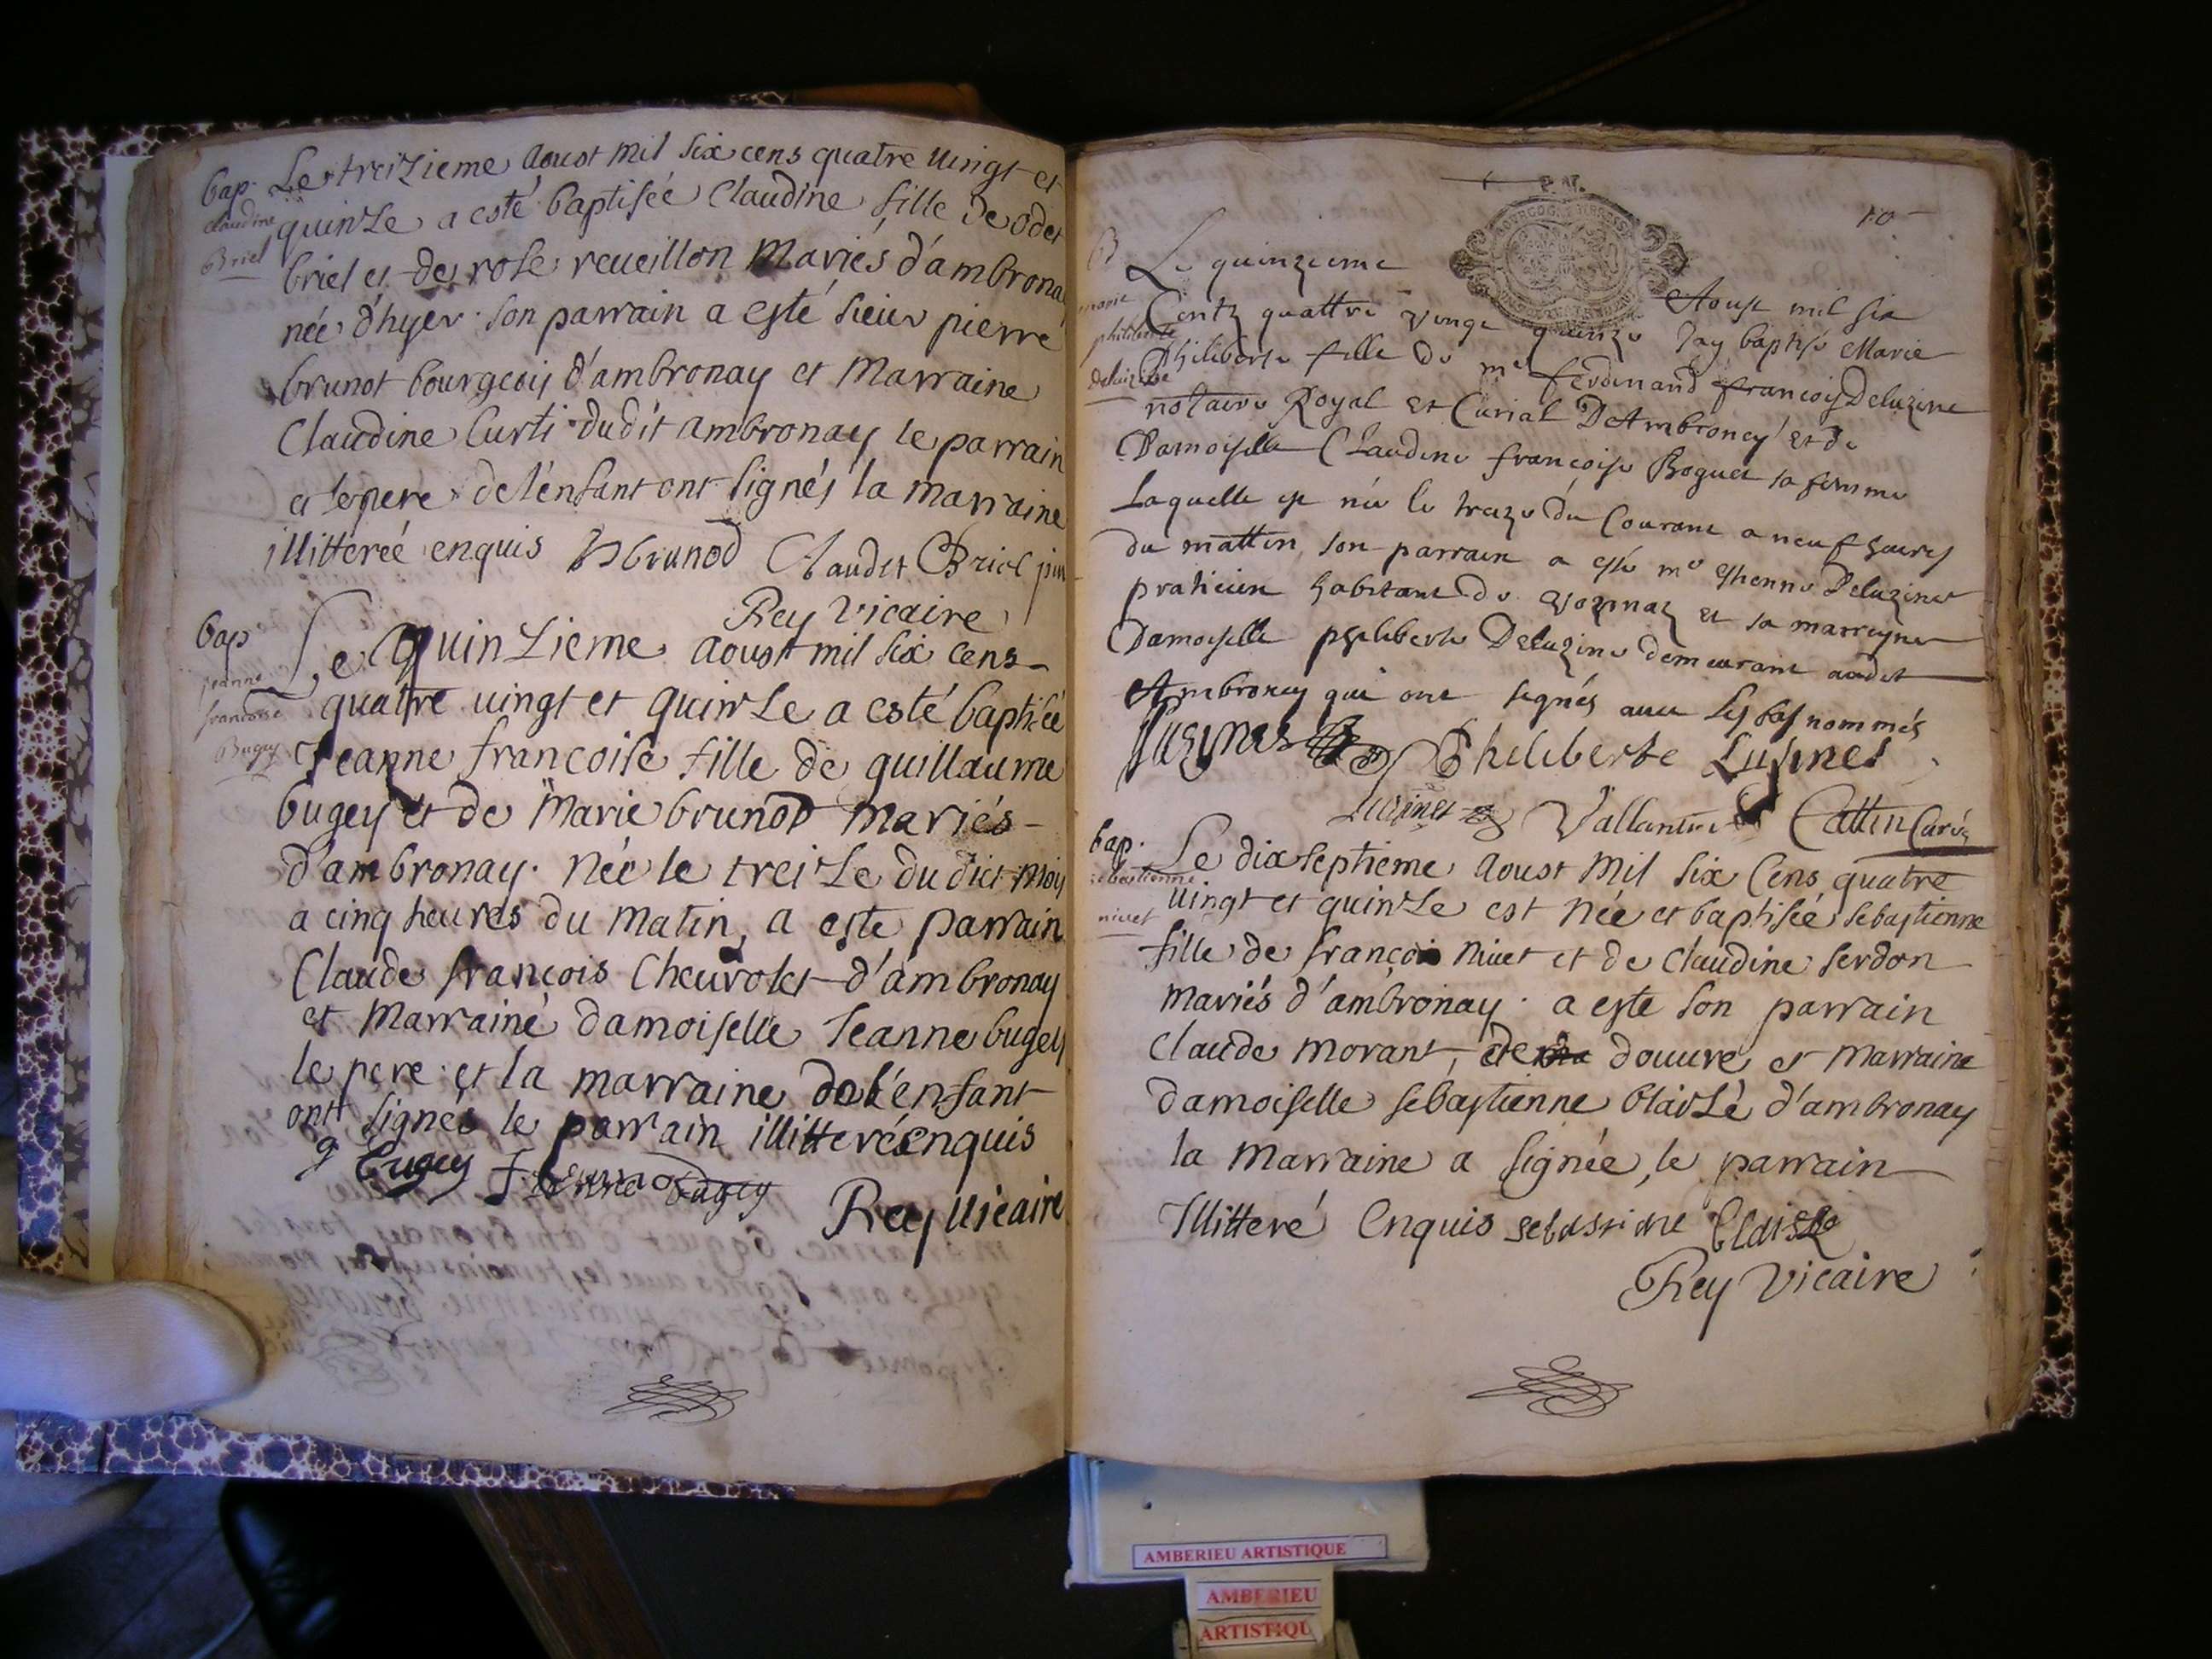 bap. Le treizieme aoust mil six cens quatre uingt et
claudine quinze a esté baptisée Claudine fille de odet
Briel briel et de rose reueillon Mariés d'ambronay
née d'hyer. son parrain a esté sieur pierre
brunot bourgeois d'ambronay et Marraine
Claudine Curti dudit ambronay le parrain
et le pere de l'enfant ont signés la marraine
illitereé enquis brunod Claudet Briel
Rey Vicaire
bap Le quinzieme aoust mil six cens
jeanne francoise quatre uingt et quinze a esté baptisée
Bugey Jeanne francoise fille de guillaume
bugey et de Marie brunot mariés
d'ambronay. Née le treize du dict moy
a cinq heures du matin, a este parrain
Claude françois Cheurolet d'ambronay
et Marraine damoiselle Jeanne bugey
le pere et la marraine de l'enfant
ont signés le parrain illitteré enquis
g Bugey Jeanne bugey
Rey Uicaire
10
B Le quinzieme Aoust mil six
marie Centz quattre vingt quinze Jay baptisé Marie
philiberte Philiberte fille de me ferdinand françois Deluzine
deluzine notaire Royal et Curial DAmbroney et de
Damoiselle Claudine françoise Boguet sa femme
Laquelle est née le treze du Courant a neuf heures
du mattin, son parrain a esté me Ethienne Deluzinet
praticien habitant de et sa marreyne
Damoiselle philiberte Deluzine demeurant audit
Ambroney qui ont signés auec les bas nommés
Luzines Philiberte Luzines
Luzines Vallantin Cattin Curé
bap. Le dix septieme aoust Mil six Cens quatre
sebastienne uingt et quinze est Née et baptisée sebastienne
niuet fille de françois Niuet et de Claudine serdon
mariés d'ambronay. a este son parrain
Claude morant, de douure et Marraine
damoiselle sebastienne blaizé d'ambronay
la Marraine a signée, le parrain
Illitteré Enquis sebastiene Blaize
Rey Vicaire
AMBERIEU ARTISTIQUE
AMBERIEU
ARTISTIQU